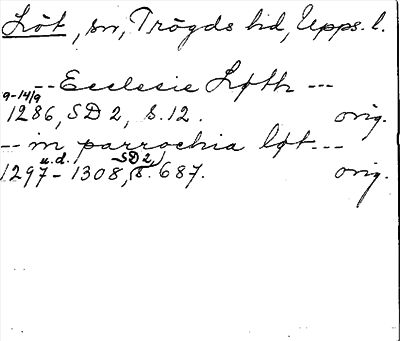 Löt, sn, Trögds hd, Upps. l.
-- Ecclesie Løth ---
9-14/9
1286, SD 2, s. 12. orig.
-- in parrochia løt ---
u.d. SD 2,
1297-1308, s. 687. orig.